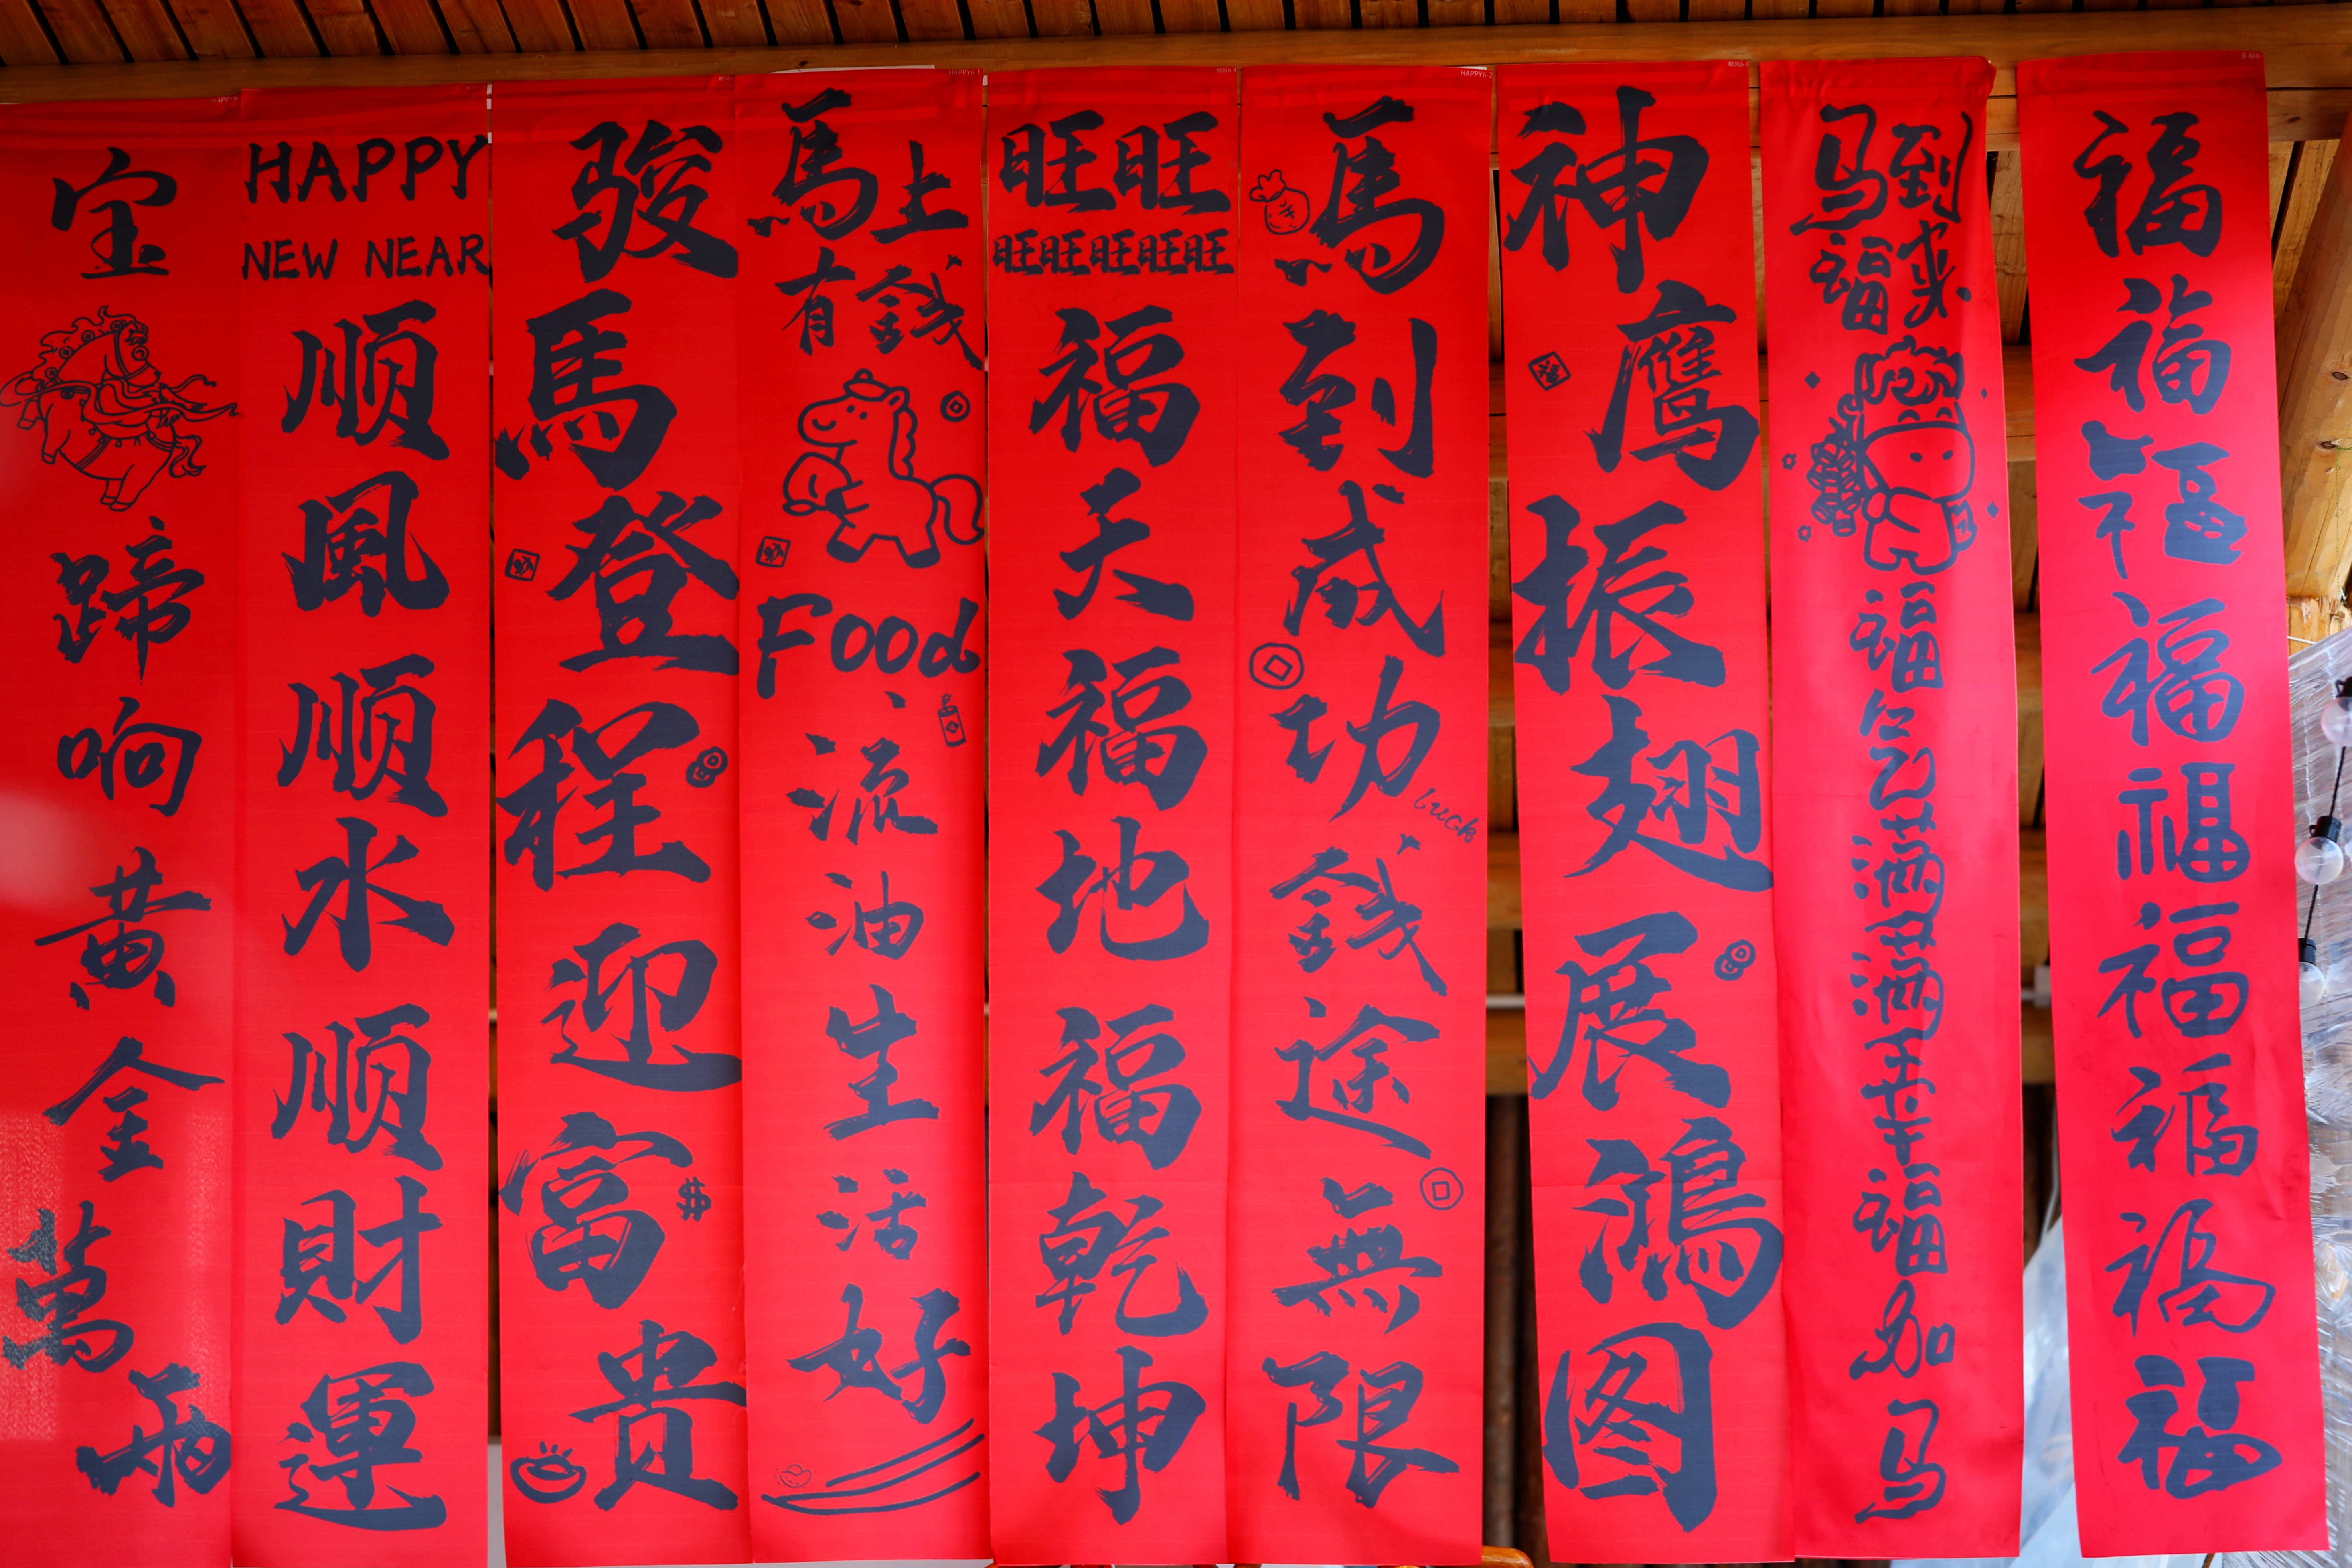 宝
蹄响黄金萬两
HAPPY
NEW NEAR
顺風顺水顺財運
骏馬登程迎富贵
$
HAPPY6-1
馬上
有錢
Food
流油生活好
旺旺
旺旺旺旺旺
福天福地福乾坤
HAPPY6-2
馬到成功
luck
錢途無限
神鹰振翅展鴻图
福
马到
福来
福气满满幸福加马
福福福福福福福福福